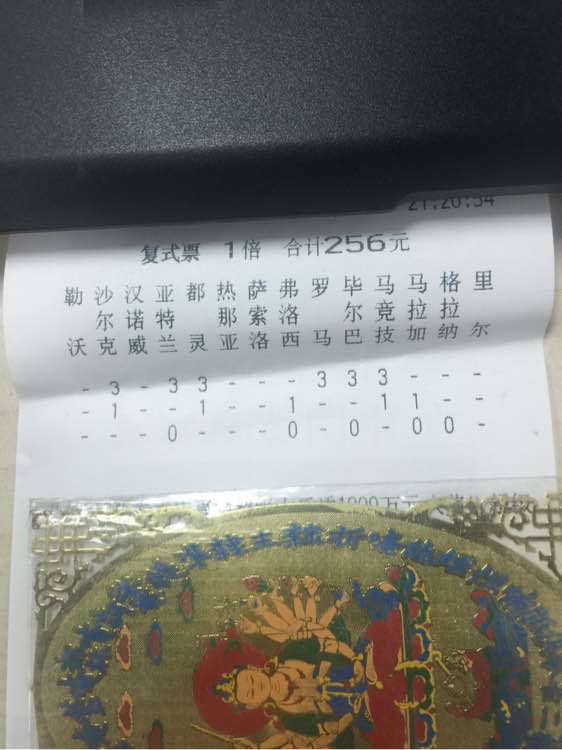 21:20:54
复式票 1倍 合计256元
勒 沙 汉 亚 都 热 萨 弗 罗 毕 马 马 格 里
尔 诺 特 那 索 洛 尔 竞 拉 拉
沃 克 威 兰 灵 亚 洛 西 马 巴 技 加 纳 尔
- 3 - 3 3 - - - 3 3 3 - - -
- 1 - - 1 - - 1 - - 1 1 - -
- - - 0 - - - 0 - 0 - 0 0 -
1000万元